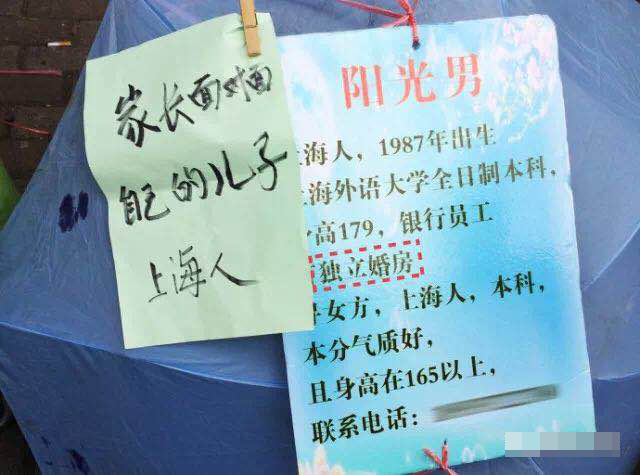 家长面对面
自己的儿子
上海人
阳光男
海人，1987年出生
海外语大学全日制本科，
高179，银行员工
独立婚房
女方，上海人，本科，
本分气质好，
且身高在165以上，
联系电话：